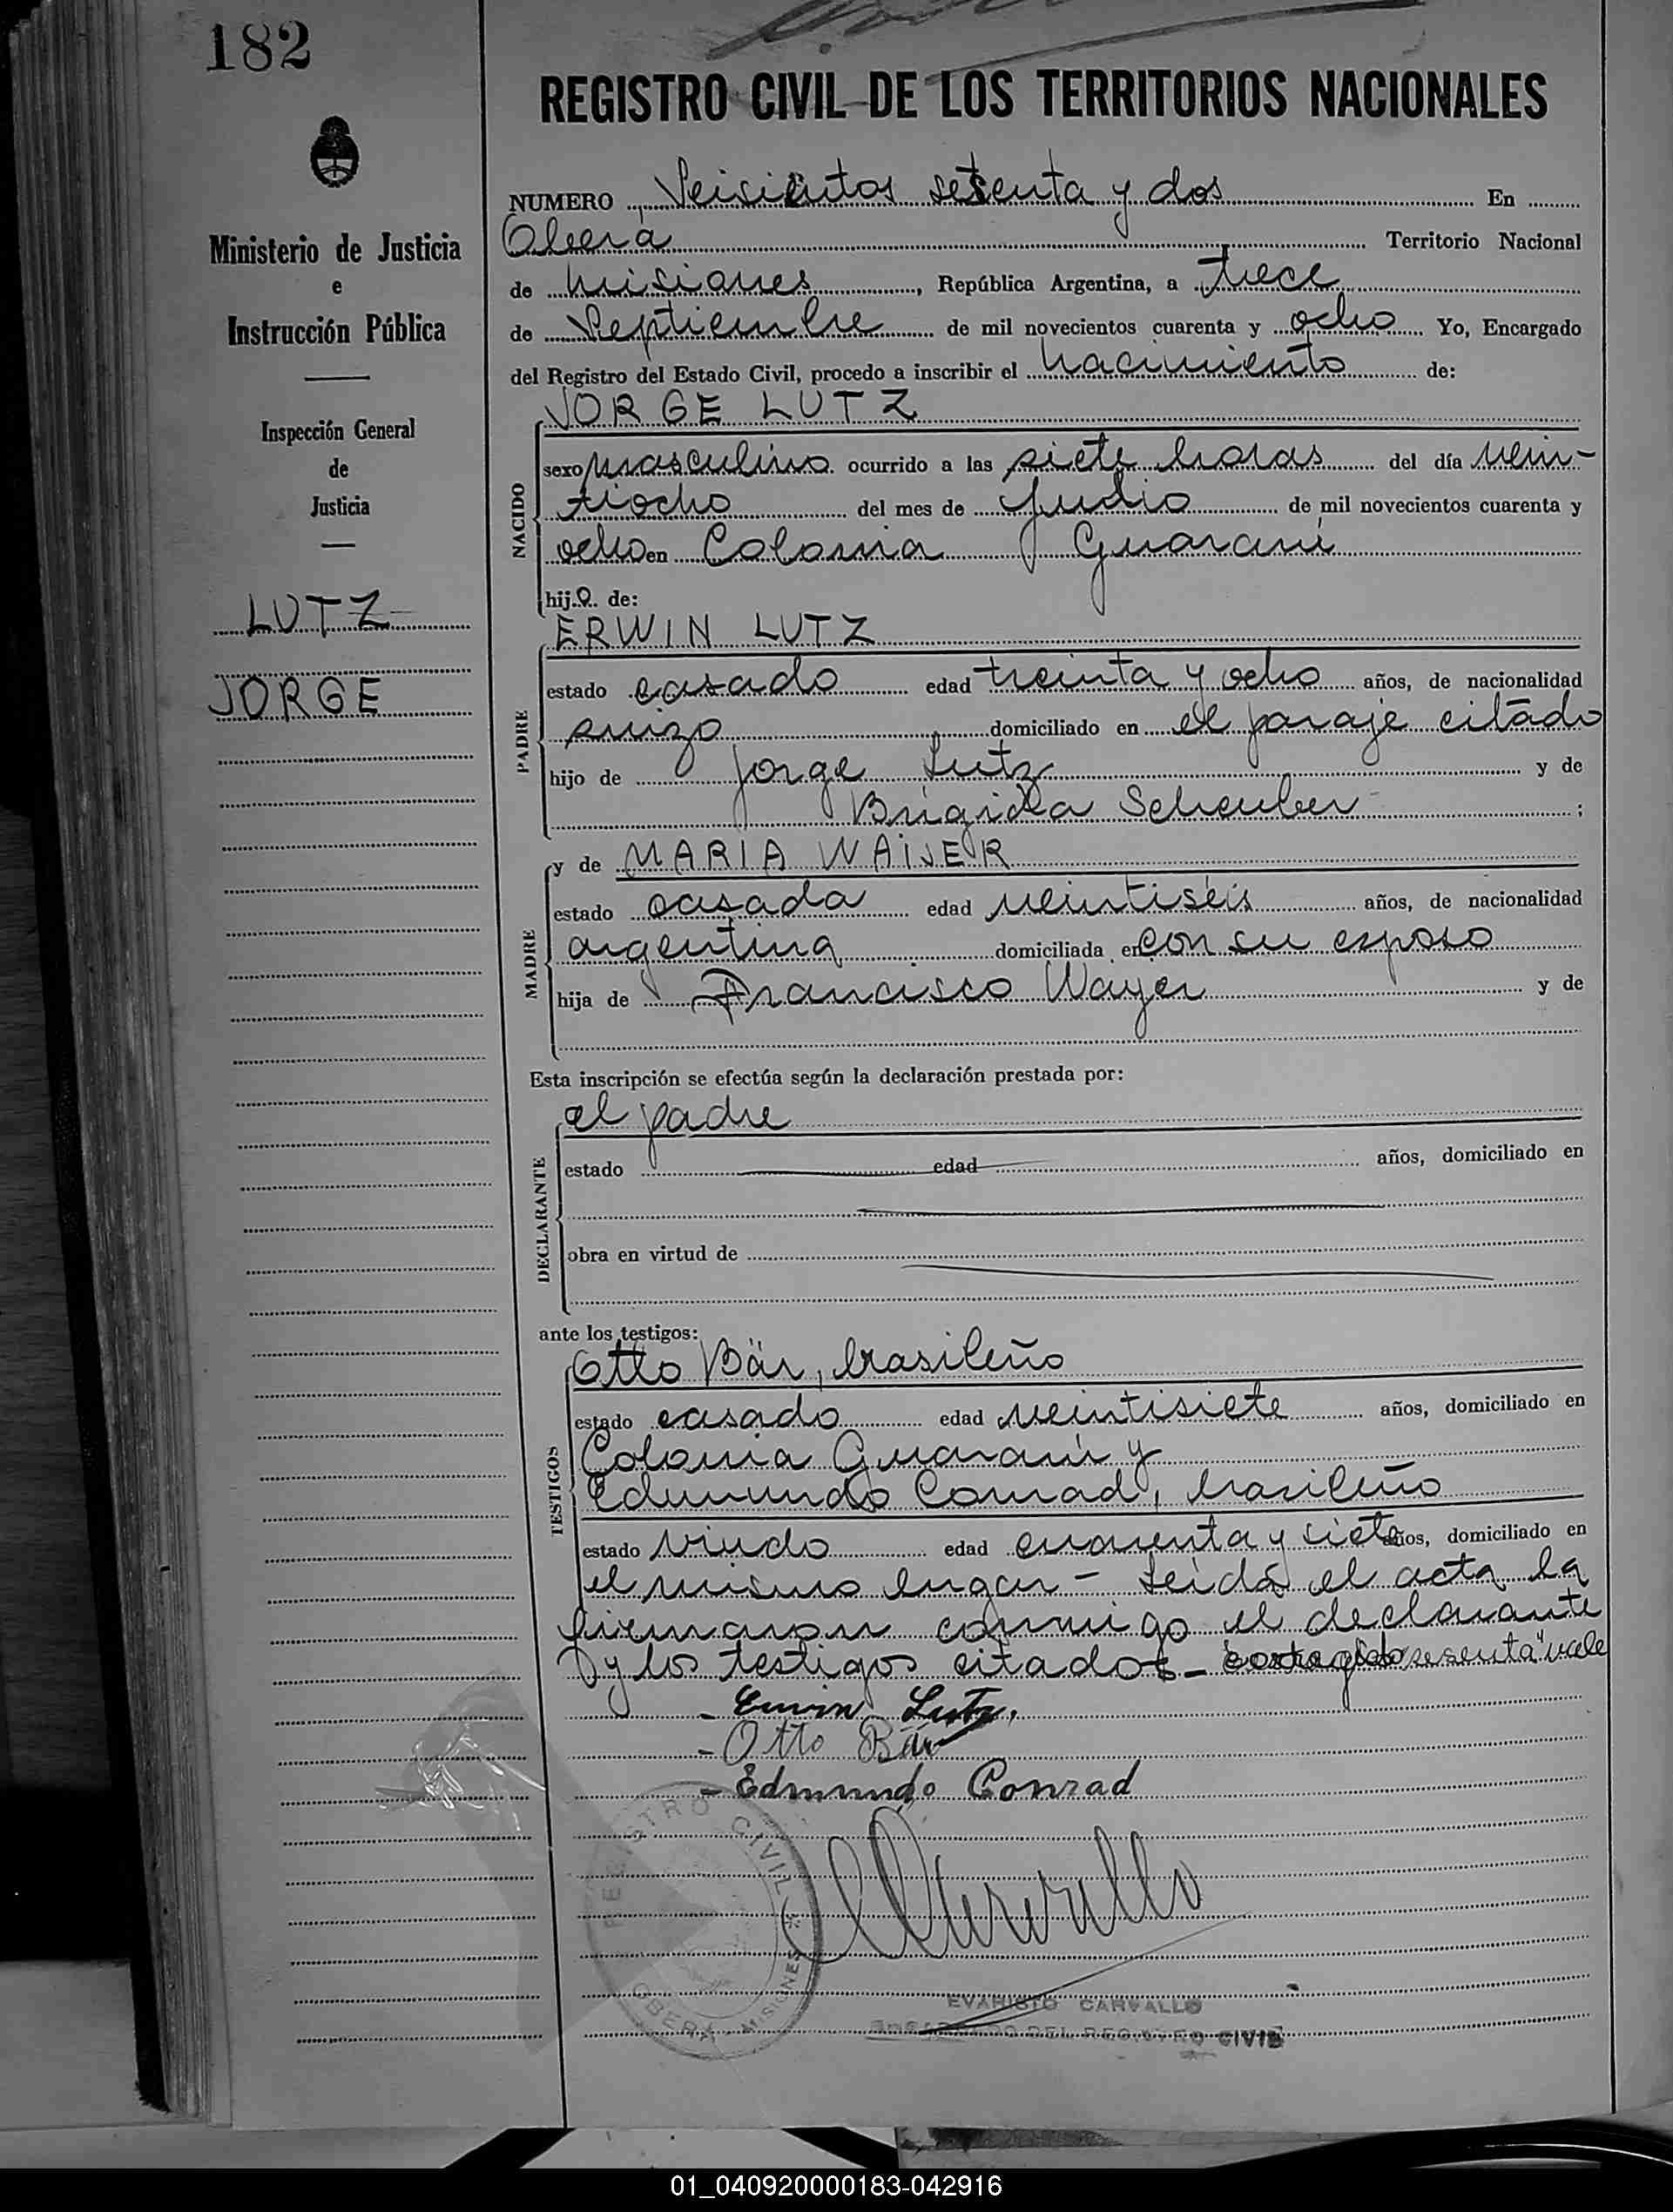 182
REGISTRO CIVIL DE LOS TERRITORIOS NACIONALES
Ministerio de Justicia
e
Instrucción Pública
Inspección General
de
Justicia
LUTZ
JORGE
NUMERO Seiscientos sesenta y dos En
Oberá Territorio Nacional
de Misiones, República Argentina, a trece
de Septiembre de mil novecientos cuarenta y ocho Yo, Encargado
del Registro del Estado Civil, procedo a inscribir el nacimiento de:
JORGE LUTZ
NACIDO
sexo masculino ocurrido a las siete horas del día vein-
tiocho del mes de Julio de mil novecientos cuarenta y
ocho en Colonia Guaraní
hijo de:
ERWIN LUTZ
PADRE
estado casado edad treinta y ocho años, de nacionalidad
suizo domiciliado en el paraje citado
hijo de Jorge Lutz y de
Brigida Scheuber ;
y de MARIA WAIJER
MADRE
estado casada edad veintiséis años, de nacionalidad
argentina domiciliada en con su esposo
hija de Francisco Wayer y de
Esta inscripción se efectúa según la declaración prestada por:
el padre
DECLARANTE
estado edad años, domiciliado en
obra en virtud de
ante los testigos:
Otto Bär, brasileño
TESTIGOS
estado casado edad veintisiete años, domiciliado en
Colonia Guaraní y
Edmundo Conrad, brasileño
estado viudo edad cuarenta y siete años, domiciliado en
el mismo lugar - Leída el acta la
firmaron conmigo el declarante
y los testigos citados - sesenta" vale
- Erwin Lutz.
- Otto Bär
- Edmundo Conrad
REGISTRO CIVIL * OBERA - MISIONES
EVARISTO CARVALLO
ENCARGADO DEL REGISTRO CIVIL
01_040920000183-042916